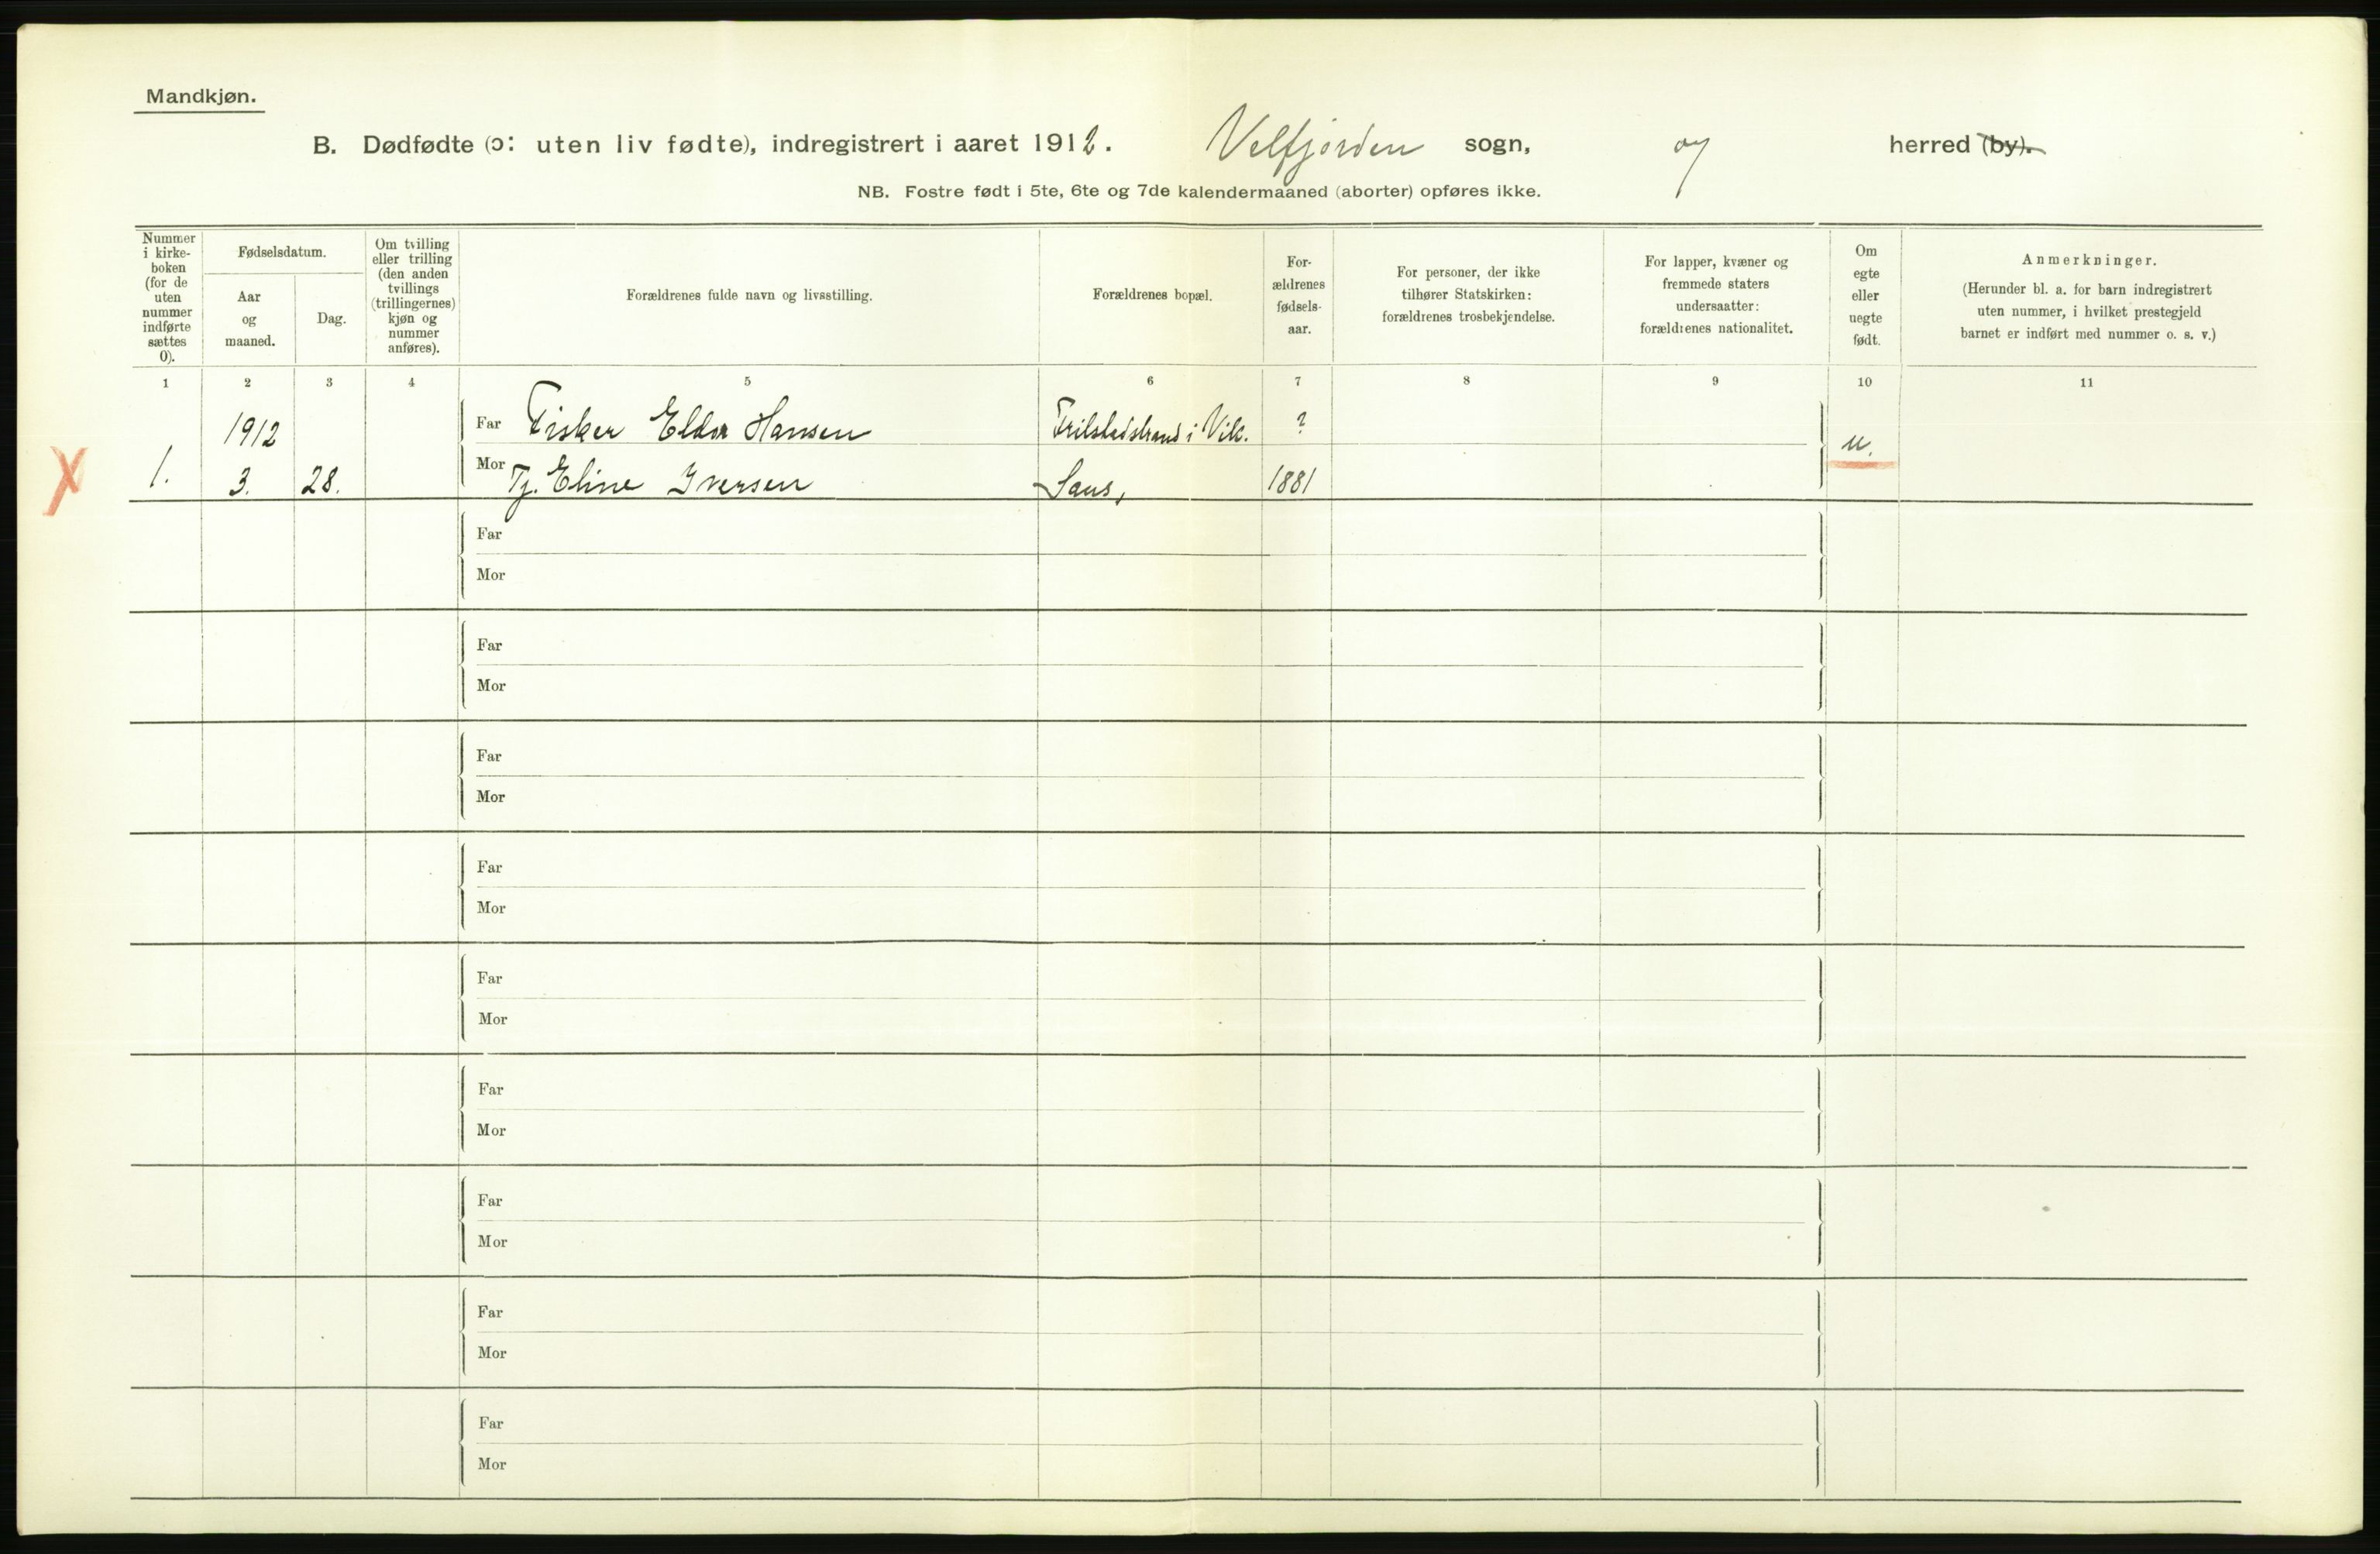 Mandkjøn.
B. Dødfødte (ɔ: uten liv fødte), indregistrert i aaret 1912. Velfjorden sogn, og herred (by).
NB. Fostre født i 5te, 6te og 7de kalendermaaned (aborter) opføres ikke.
Nummer
i kirke-
boken
(for de
uten
nummer
indførte
sættes
0).
Fødselsdatum.
Aar
og
maaned.
Dag.
Om tvilling
eller trilling
(den anden
tvillings
(trillingernes)
kjøn og
nummer
anføres).
Forældrenes fulde navn og livsstilling.
Forældrenes bopæl.
For-
ældrenes
fødsels-
aar.
For personer, der ikke
tilhører Statskirken:
forældrenes trosbekjendelse.
For lapper, kvæner og
fremmede staters
undersaatter:
forældrenes nationalitet.
Om
egte
eller
uegte
født.
Anmerkninger.
(Herunder bl. a. for barn indregistrert
uten nummer, i hvilket prestegjeld
barnet er indført med nummer o. s. v.)
1 2 3 4 5 6 7 8 9 10 11
1912 Far Fisker Eldor Hansen i Vik. ?
1. 3. 28. Mor Tj. Eline Iversen Saus, 1881 u.
Far
Mor
Far
Mor
Far
Mor
Far
Mor
Far
Mor
Far
Mor
Far
Mor
Far
Mor
Far
Mor